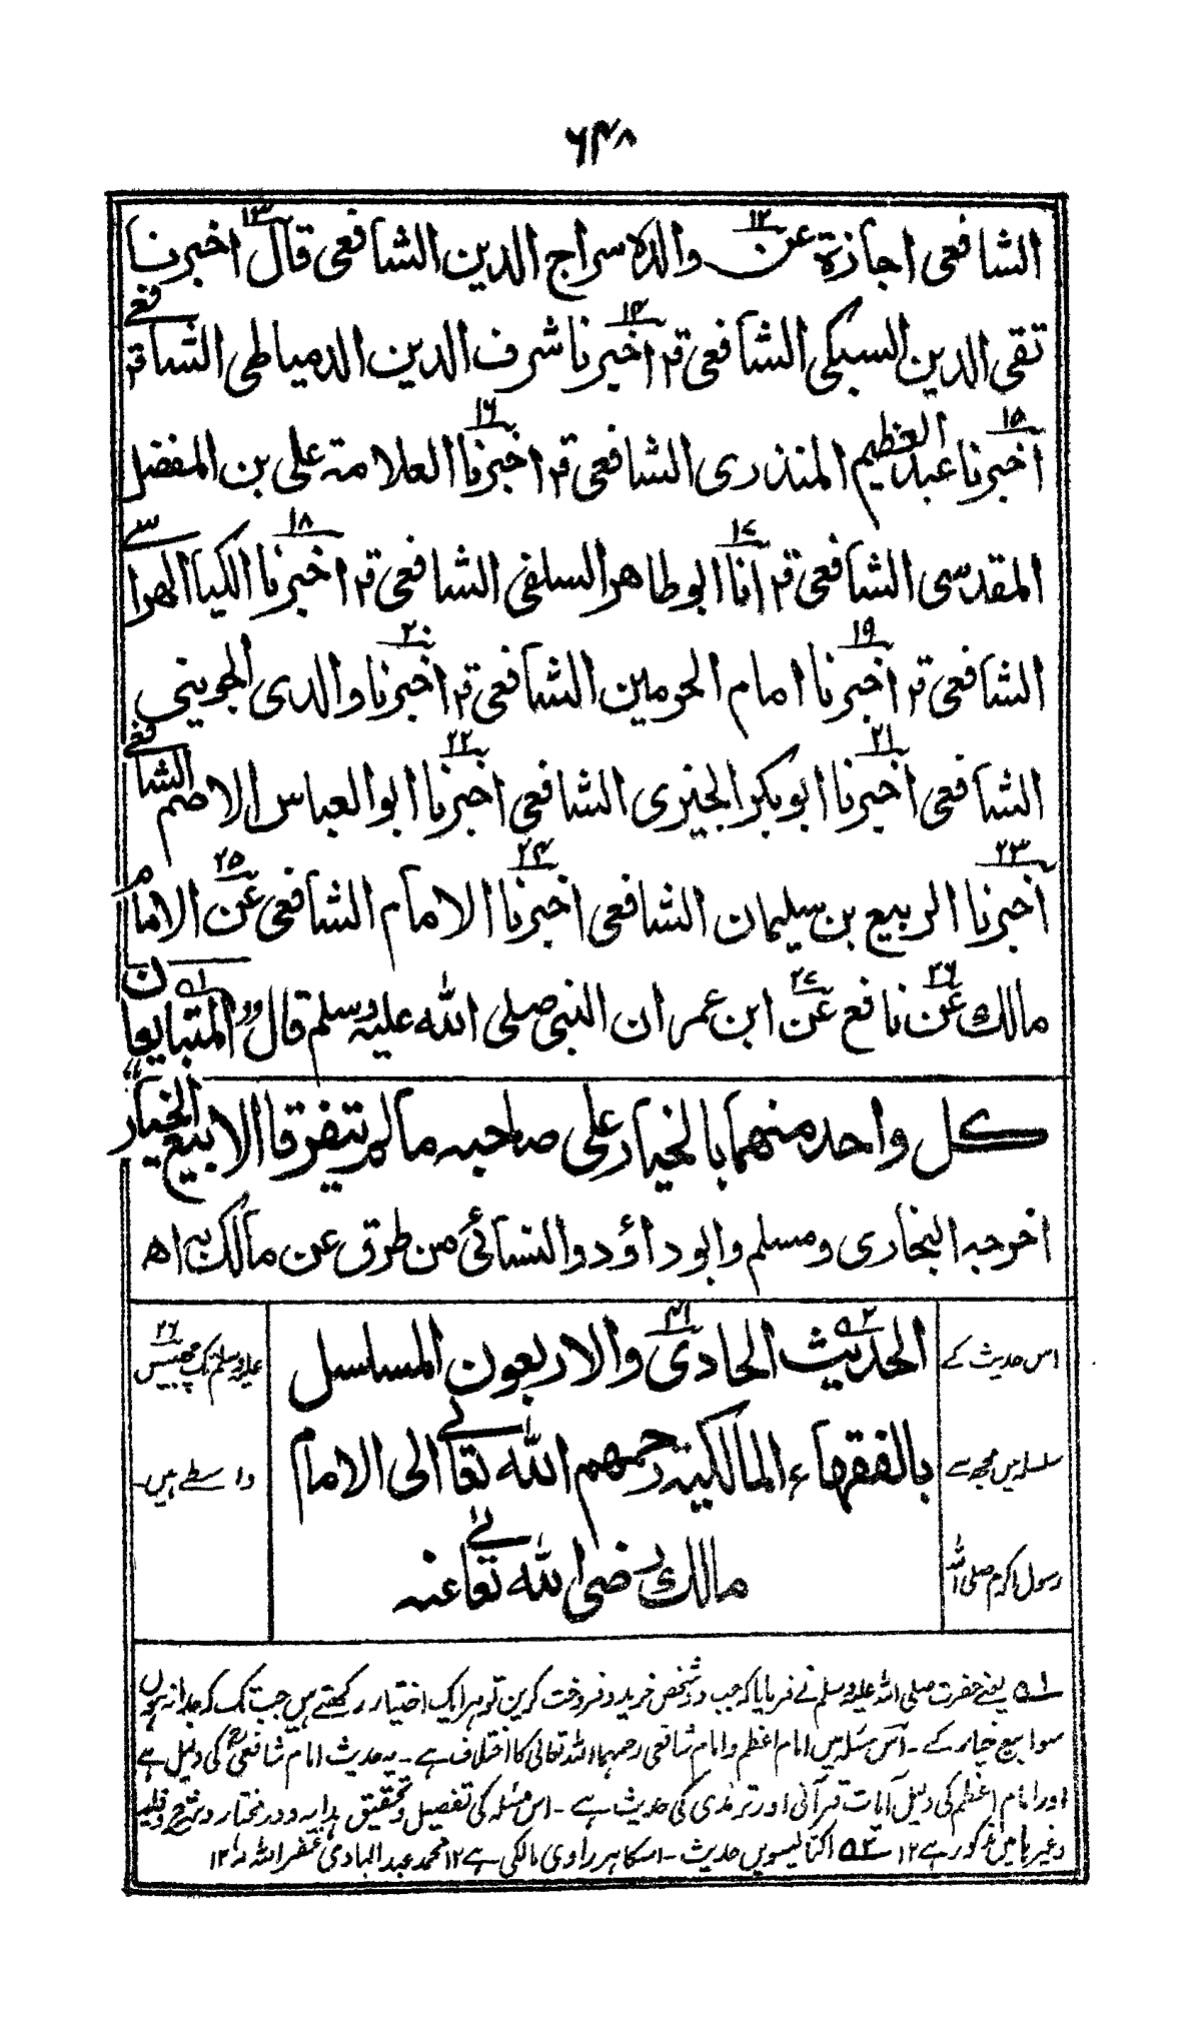 ٦٤٨
الشافعی اجازة عن ١٢ والده سراج الدین الشافعی قال ١٣ اخبرنا
تقی الدین السبکی الشافعی قر ١٤ اخبرنا شرف الدین الدمیاطی الشافعے قر
١٥ اخبرنا عبد العظیم المنذری الشافعی قر ١٦ اخبرنا العلامة علی بن المفضل
المقدسی الشافعی قر ١٧ انا ابو طاهر السلفی الشافعی قر ١٨ اخبرنا الکیا الهراسے
الشافعی قر ١٩ اخبرنا امام الحرمین الشافعی قر ٢٠ اخبرنا والدی الجوینی
الشافعی ٢١ اخبرنا ابوبکر الحیری الشافعی ٢٢ اخبرنا ابو العباس الاصم الشافعے
٢٣ اخبرنا الربیع بن سلیمان الشافعی ٢٤ اخبرنا الامام الشافعی ٢٥ عن الامام
مالك ٢٦ عن نافع ٢٧ عن ابن عمر ان النبی صلی الله علیه وسلم قال «المتبایعان
کل واحد منهما بالخیار علی صاحبه مالم یتفرقا الا بیع الخیار»
اخرجه البخاری ومسلم وابو داؤد والنسائی من طرق عن مالك به اه
اس حدیث کے
سلسلہ میں مجھ سے
رسول اکرم صلی اللہ
علیہ وسلم تک چھبیس ٢٦
واسطے ہیں۔
الحدیث الحادی ٤١ والاربعون المسلسل
بالفقهاء المالکیة رحمهم الله تعالے الی الامام
مالك رضی الله تعالے عنه
ے ١ یعنے حضرت صلی اللہ علیہ وسلم نے فرمایا کہ جب دو شخص خرید و فروخت کریں تو ہر ایک اختیار رکھتے ہیں جب تک کہ جدا نہ ہوں
سوا بیع خیار کے۔ اس مسئلہ میں امام اعظم و امام شافعی رحمہما اللہ تعالی کا اختلاف ہے۔ یہ حدیث امام شافعیؒ کی دلیل ہے
اور امام اعظم کی دلیل آیات قرآنی اور ترمذی کی حدیث ہے۔ اس مسئلہ کی تفصیل و تحقیق ہدایہ و در مختار و
وغیرہا میں مذکور ہے ١٢ ے ٢ اکتالیسویں حدیث۔ اسکا ہر راوی مالکی ہے ١٢ محمد عبد الہادی غفر اللہ لہ ١٢